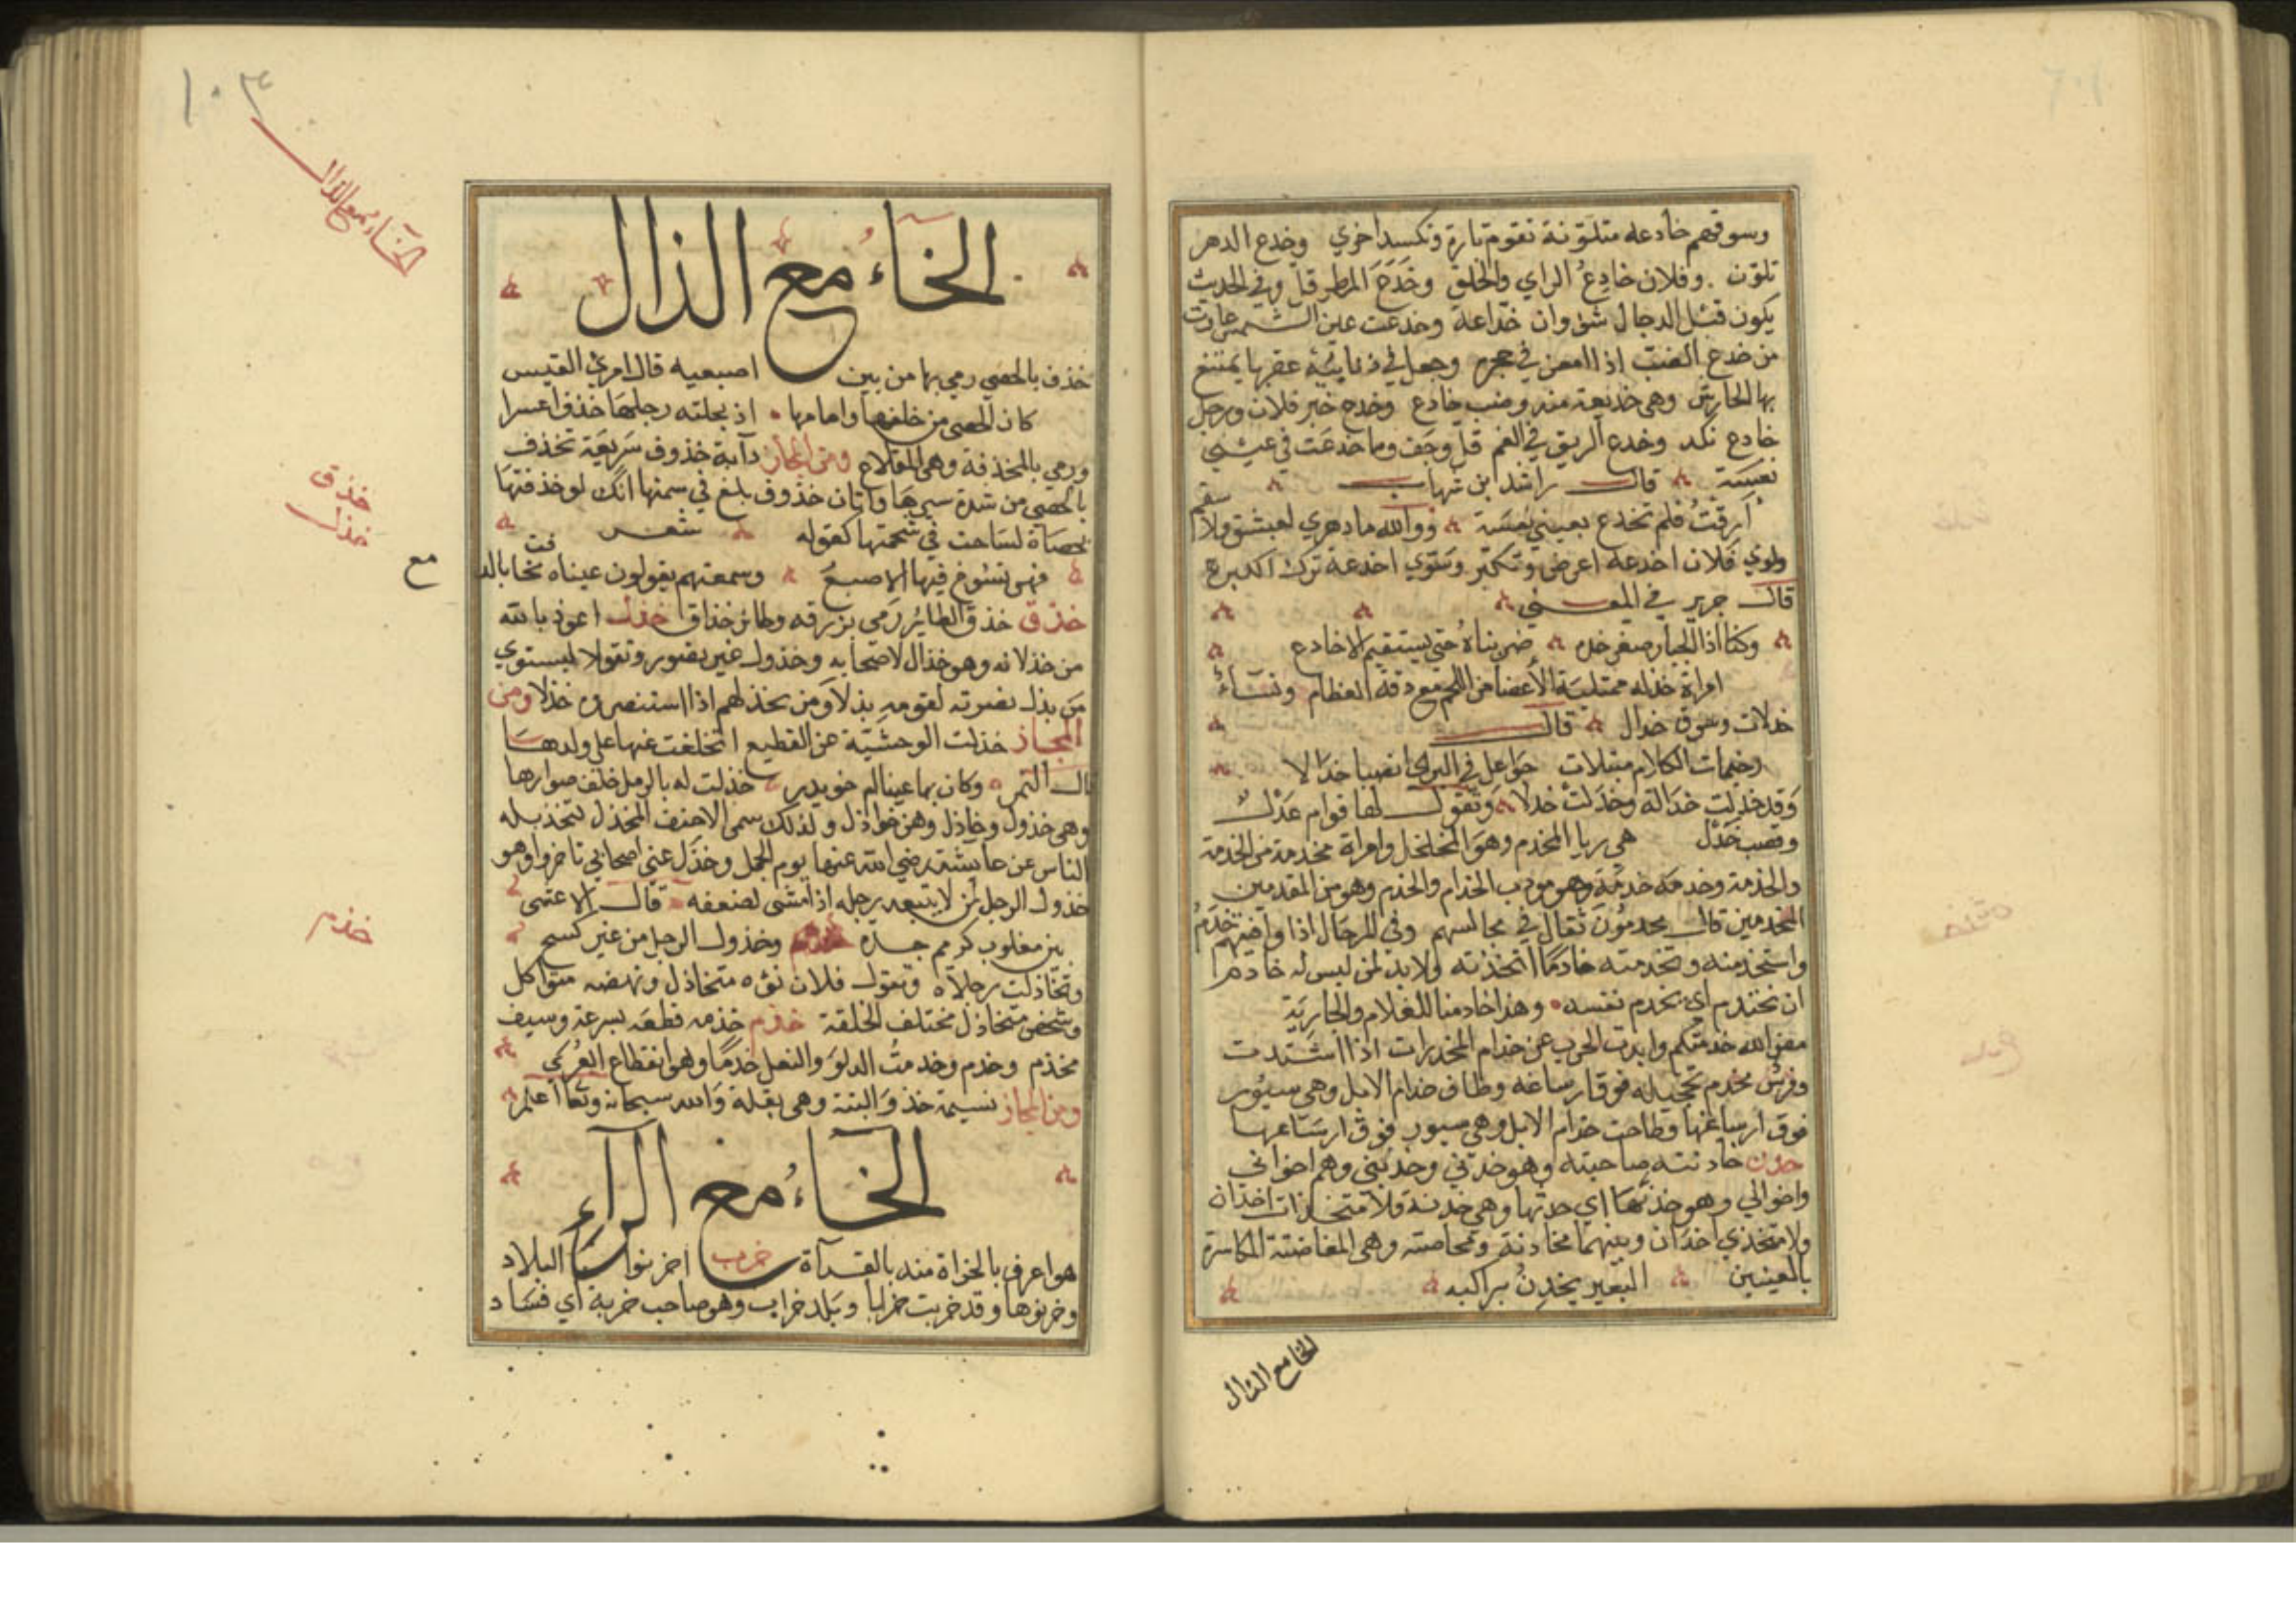 وسوقهم خادعه متلوّنة تقوم تارة وتكسد اخري وخدع الدهر
تلوّن . وفلان خادِعُ الراي والخلق وخَدَعَ المطر قل وفي الحديث
يكون قبْل الدجال سنون خدّاعة وخدعت عين الشمس غارت
من خدع الضبّ اذا امعن في جحره وجعل في ذنابيه عقربا يمتنع
بها الحارش وهي خديعة منه وضب خادع وخدع خير فلان ورجل
خادع نكد وخدع الريق في الفم قل وجف وما خدعَت في عيني
نعسَة قال راشد ابن شهاب
أرقتُ فلم تخدع بعيني نعسَة ووالله ما دهري لعشق ولا سقم
ولوي فلان اخدعه اعرض وتكبّر وسَوّي اخدعه ترك الكبر ع
قال جرير في المعنى
وكنا اذا الجبار صعر خده ضربناهُ حتى يستقيم الاخادع
امراة خدله ممتلئة الأعضا من اللحم مع دقة العظام ونسَاءُ
خدلات وسوق خدال قال
رخيمات الكلام مبتلات جَواعل في البري قصبا خدَالا
وَقد خدِلت خدَالة وخدَلتْ خدلا وَتقول لها قوام عَدْل
وقصب خَدْل هي ريا المخدم وهو المخلخل وامراة مخدمة من الخدمة
والخدمة وخدمه خدمَة وهو مودب الخدام والخدم وهو من المقدمين
المخدمين قال مخدمُونَ ثقال في مجالسهم وفي الرحَال اذا وافيتهم خدَمُ
واستخدمته وتخدمته خادمًا اتخذته ولا بد لمن ليس له خادم
ان يختدم اي يخدم نفسه وهذا خادمنا للغلام والجاريَة
فض الله خدمتكم وابدت الحرب عن خدام المخدرات اذا اشتدت
وفرسٌ مخدم تحجيله فوق ارساغه وطاف خدام الابل وهي سيُور
فوق ارساغها وطاحت خدام الابل وهي سيور فوق ارسَاغها
خدن خادنته صاحبته وهو خدني وخديني وهم اخواني
واخدانى وهو خدنها اي حدثها وهي خدنة ولا متخذات اخدان
ولا متخذي اخدَان وبينهما مخادنة ومخاضنة وهي المغاضنة المكاسرة
بالعينين البعير يخدِنُ براكبه
الخا مع الذال
١٠٣
الخاء مع الذال
الخَاءُ مع الذال
خذف بالحصى رمي بها من بين اصبعيه قال امرئ القيس
كان الحصى من خلفها وامامها اذ نجلته رجلها خذف اعسرا
ورمي بالمخذفة وهي المقلاع ومن المجاز دآبة خذوف سَريعَة تخذف
بالحصى من شدة سيرها واتان خذوف بلغ في سمنها انك لو خذفتها
بحصَاة لسَاخت في شحمتها كقوله شعر
فهي تسُوخ فيها الاصبعُ وسمعتهم يقولون عيناه تخذفت بالد
مع
خذق خذق الطائر رَمى بزرقه وطائر خذاق خذل اعوذ بالله
خذق
خذل
من خذلانه وهو خذال لاصحابه وخذول غير نصور وتقول لا يستوي
مَن بذل نصرته لقومه بذلا وَمن يخذلهم اذا استنصروه خذلا ومن
المجاز خذلت الوحشيّة عن القطيع اتخلفت عنها على ولدهَا
قال النمر وكانها عينا ام خويدر خذلت له بالرمل خلف صوارها
وهي خذول وخاذل وهن خواذل ولذلك سمي الاحنف المخذل لتخذيله
الناس عن عايشة رضي الله عنها يوم الجمل وخذّل عني اصحابي تاخروا وهو
خذول الرجل لمن لا يتبعه رجله اذا مشى لضعفه قال الاعشى
بين مغلوب كريم جده وخذول الرجل من غير كسح
خذم
وتخاذلت رجلاه وتقول فلان نوءه متخاذل ونهضه متواكل
وشخص متخاذل مختلف الخلقة خذم خذمه قطعَه بسرعة وسيف
مخذم وخذم وخذمتُ الدلو والنعل خذمًا وهو انقطاع العُري
ومن المجاز نسيمة خذوَ البتة وهي بقلة وَالله سبحانه وتعا اعلم
الخاءُ مع الرآء
هو اعرف بالخراة منه بالقرآة خرب اخربوا البلاد
وخربوها وقد خربت خرابا وبلد خراب وهو صاحب خربة اي فسَاد